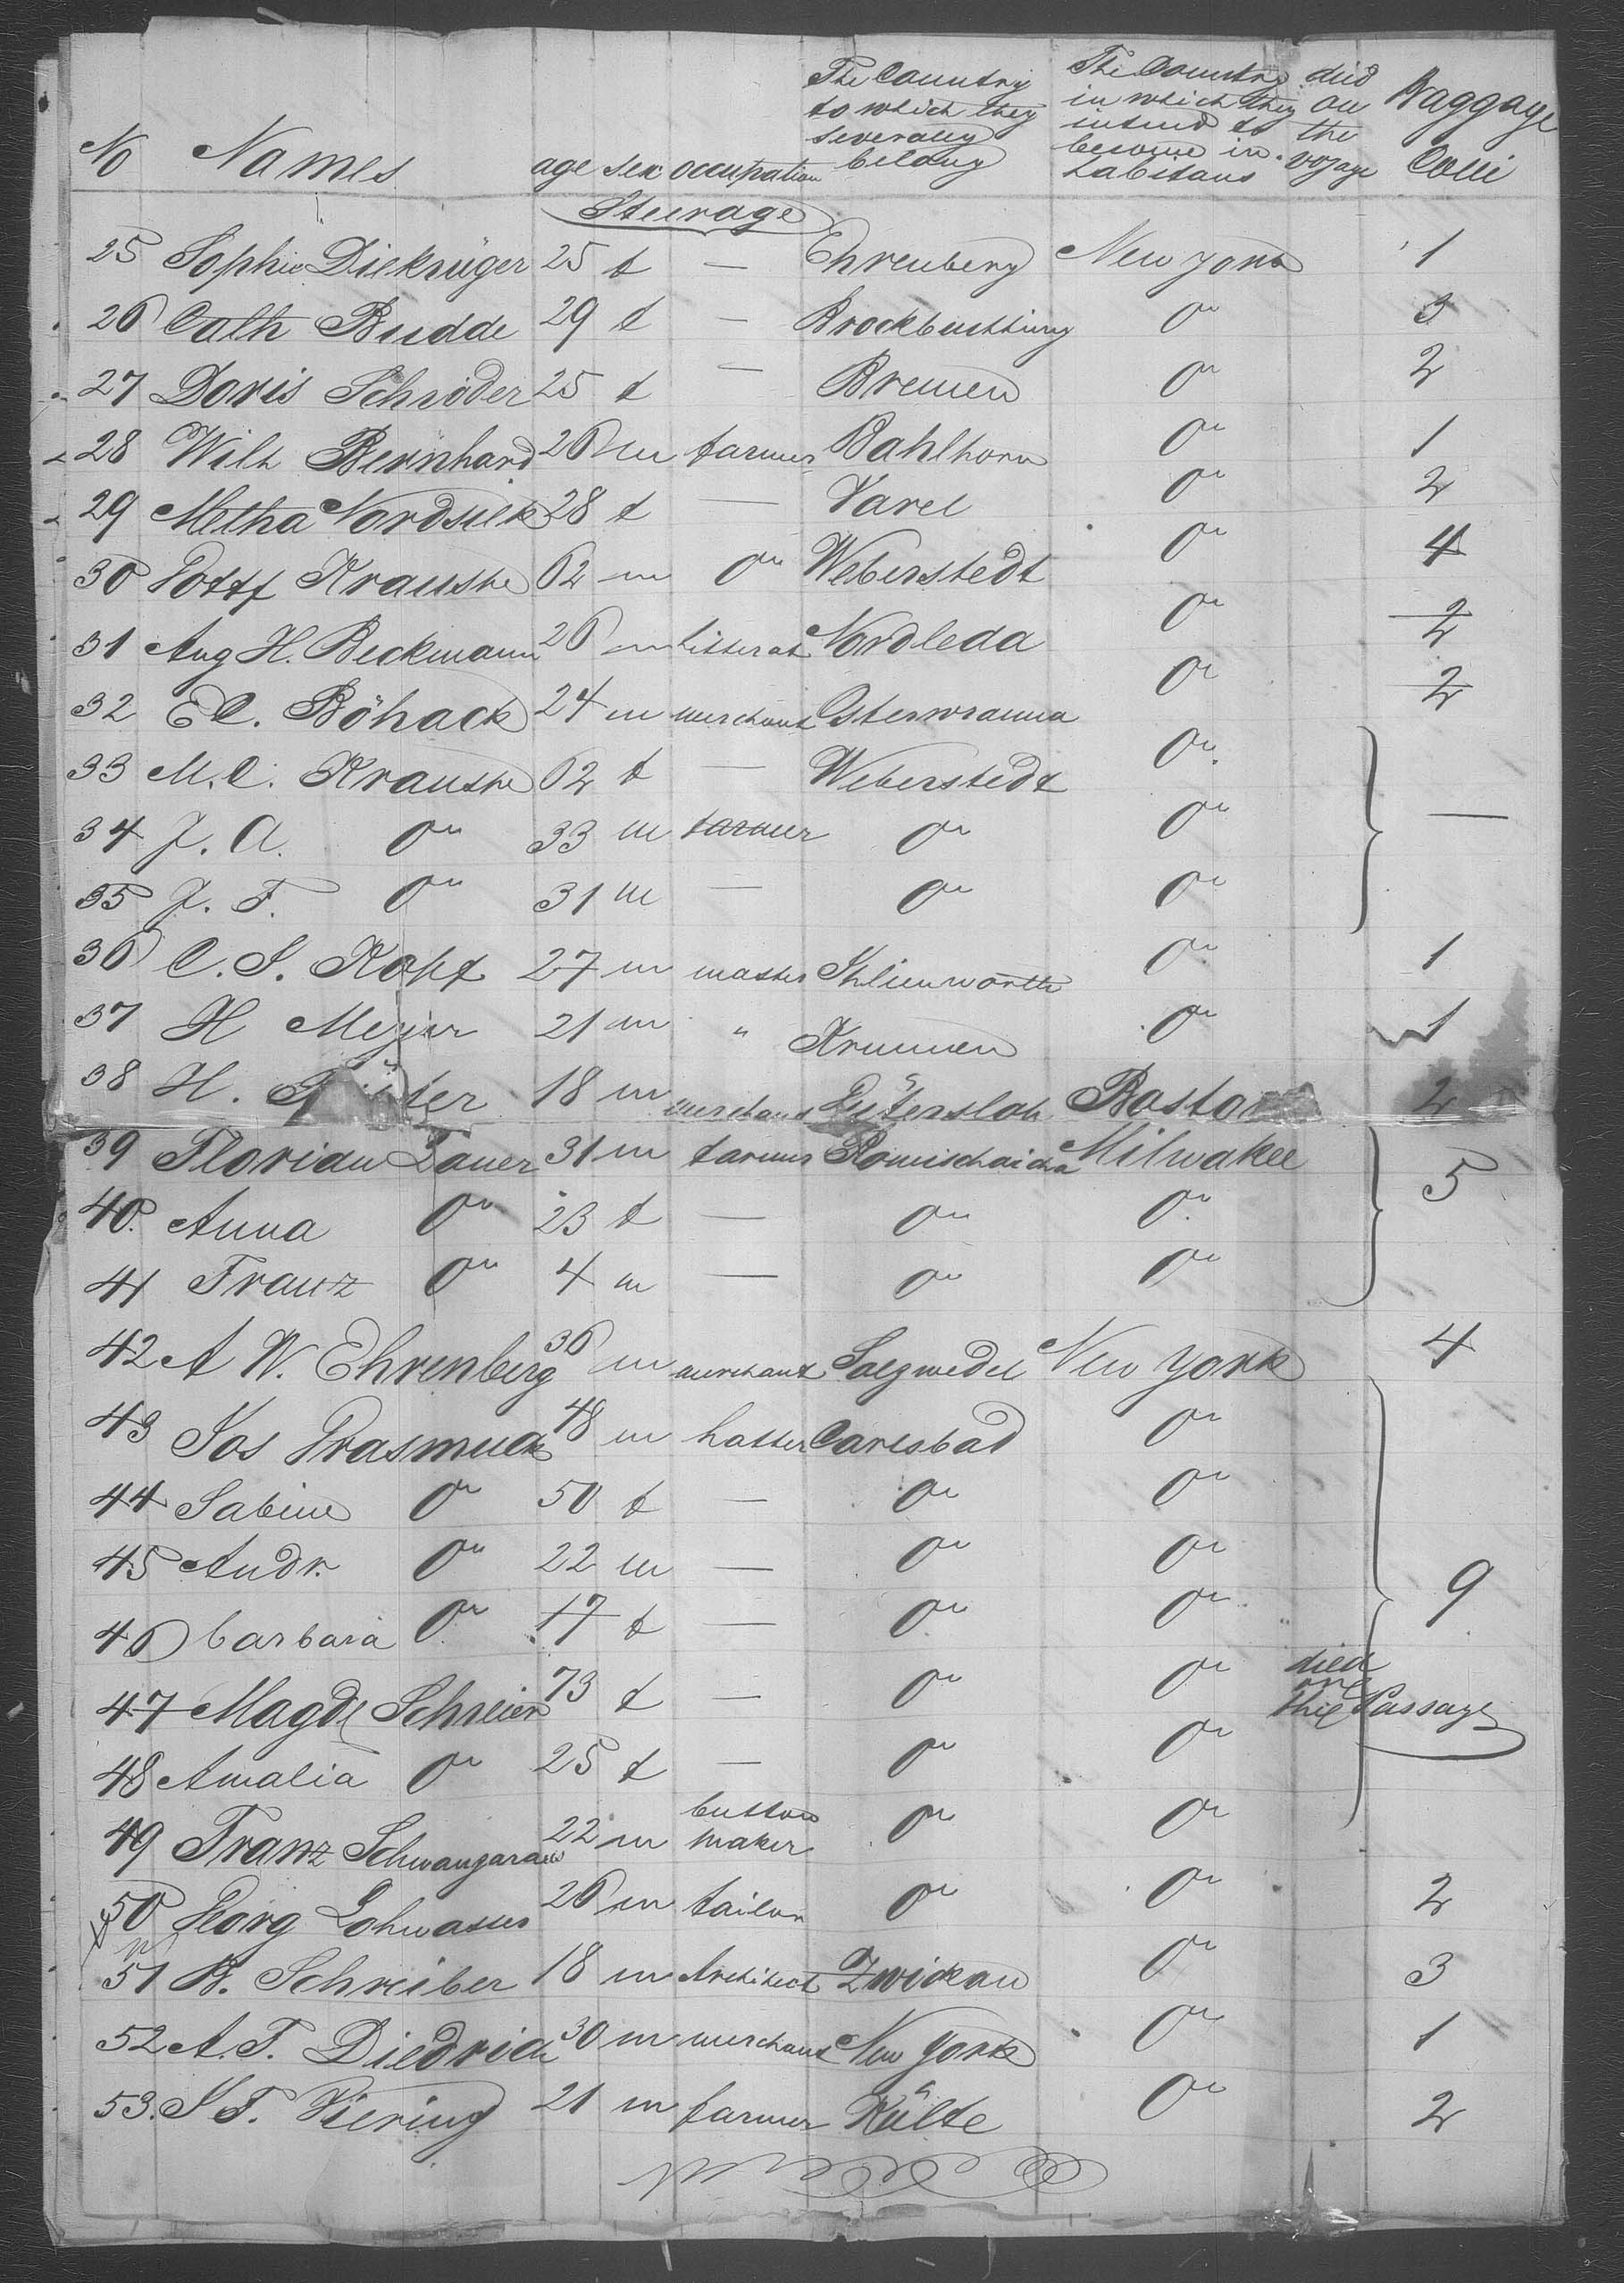 No Names age sex occupation The Country to which they severally belong The Country in which they intend to become inhabitans died on the voyage Baggage Colli
Steerage
25 Sophie Diekrüger 25 f — Ehrenberg New York 1
26 Cath Budde 29 f — 0" 3
27 Doris Schröder 25 f — Bremen 0" 2
28 Wilh Bernhard 26 m farmer Bahlhorn 0" 1
29 Metha Nordsiek 28 f — Varel 0" 2
30 Kraushe 62 m 0" Weberstedt 0" 4
31 Aug H. Beckmann 26 m litterat Nordleda 0" 2
32 E C. Böhack 24 m merchant 0" 2
33 M. C. Kraushe 62 f — Weberstedt 0" —
34 J. A. 0" 33 m farmer 0" 0"
35 J. F. 0" 31 m — 0" 0"
36 C. S. Kopf 27 m master 0" 1
37 H Meyer 21 m " Krumen 0" 1
38 H. 18 m merchant Gütersloh Boston 2
39 Florian Lauer 31 m farmer Milwakee 5
40. Anna 0" 23 f — 0" 0"
41 Franz 0" 4 m — 0" 0"
42 A W. Ehrenberg 36 m merchant Salzwedel New York 4
43 Jos Prasmuck 48 m hatter Carlsbad 0"
44 Sabine 0" 50 f — 0" 0"
45 Andr. 0" 22 m — 0" 0" 9
46 barbara 0" 17 f — 0" 0"
47 Magdl Schreier 73 f — 0" 0" died one thie Passage
48 Amalia 0" 25 f — 0" 0"
49 Franz 22 m button maker 0" 0"
50 Georg Lohwasser 26 m tailor 0" 0" 2
51 B. Schreiber 18 m Architect Zwickau 0" 3
52 A. F. Diedrich 30 m merchant New York 0" 1
53. J F. Viering 21 m farmer Külte 0" 2